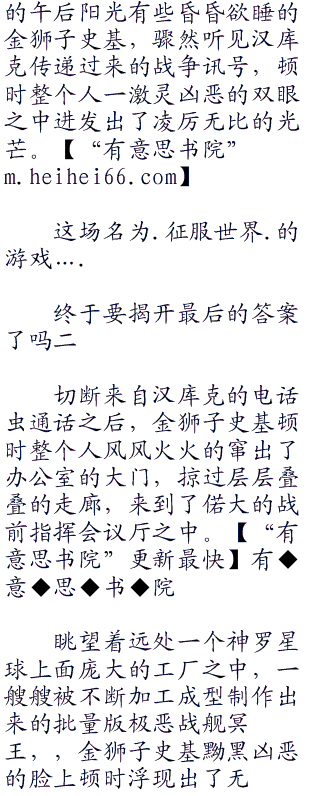 的午后阳光有些昏昏欲睡的
金狮子史基，骤然听见汉库
克传递过来的战争讯号，顿
时整个人一激灵凶恶的双眼
之中迸发出了凌厉无比的光
芒。【“有意思书院”
m.heihei66.com】
这场名为.征服世界.的
游戏….
终于要揭开最后的答案
了吗二
切断来自汉库克的电话
虫通话之后，金狮子史基顿
时整个人风风火火的窜出了
办公室的大门，掠过层层叠
叠的走廊，来到了偌大的战
前指挥会议厅之中。【“有
意思书院”更新最快】有◆
意◆思◆书◆院
眺望着远处一个神罗星
球上面庞大的工厂之中，一
艘艘被不断加工成型制作出
来的批量版极恶战舰冥
王，，金狮子史基黝黑凶恶
的脸上顿时浮现出了无